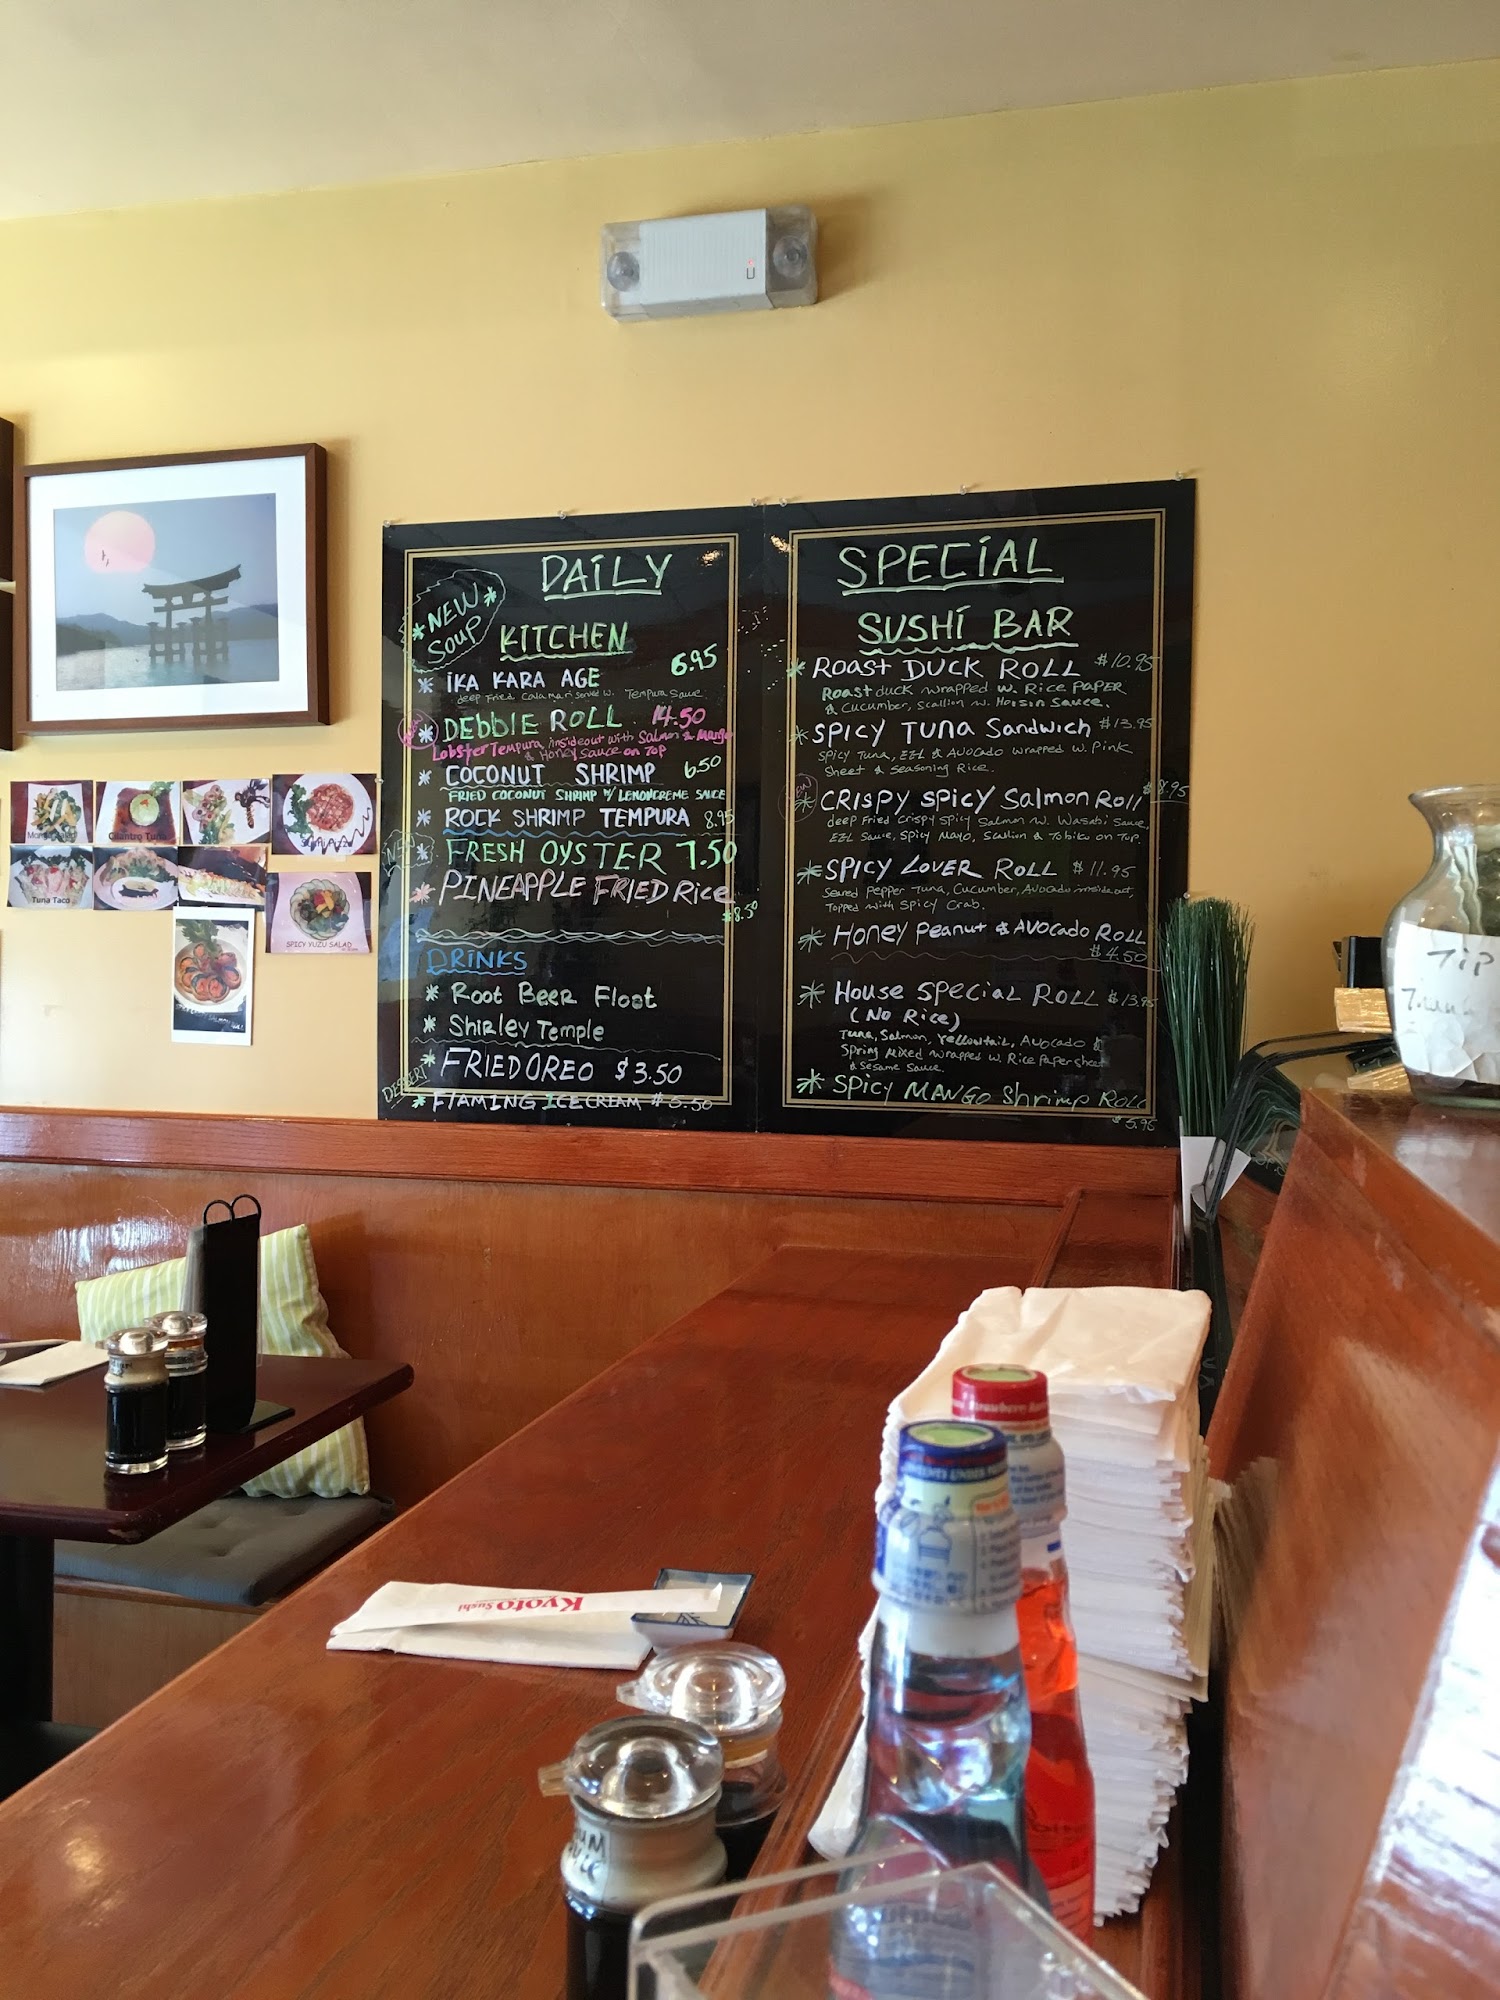 DAILY
* NEW *
Soup
KITCHEN
* IKA KARA AGE 6.95
deep Fried Calamari served w. Tempura Sauce
* DEBBIE ROLL 14.50
Lobster Tempura, inside out with Salmon & Mango
& Honey Sauce on Top
* COCONUT SHRIMP 6.50
FRIED COCONUT SHRIMP W/ LEMONCREME SAUCE
* ROCK SHRIMP TEMPURA 8.95
* FRESH OYSTER 7.50
* PINEAPPLE FRIED Rice
$8.50
DRINKS
* Root Beer Float
* Shirley Temple
DESSERT
* FRIED OREO $3.50
* FlAMING ICE CREAM $5.50
SPECIAL
SUSHI BAR
* ROAST DUCK ROLL $10.95
Roast duck wrapped w. Rice PAPER
& Cucumber, Scallion w. Hoisin Sauce.
* SPICY TUNA Sandwich $13.95
SPicy Tuna, EEL & Avocado wrapped w. Pink
Sheet & Seasoning Rice.
* CRISPY SPICY Salmon Roll $8.95
deep Fried Crispy Spicy Salmon w. Wasabi Sauce,
EEL Sauce, Spicy Mayo, Scallion & Tobiko on Top.
* SPICY LOVER ROLL $11.95
Seared Pepper Tuna, Cucumber, Avocado inside out,
Topped with Spicy Crab.
* Honey Peanut & AVOCADO ROLL
$4.50
* House Special Roll $13.95
(No Rice)
Tuna, Salmon, Yellowtail, Avocado &
Spring Mixed wrapped w. Rice Paper sheet
& Sesame Sauce.
* Spicy MANGO Shrimp ROLL
$5.95
Cilantro Tuna
Tuna Taco
SPICY YUZU SALAD
TiP
Kyoto Sushi
Strawberry